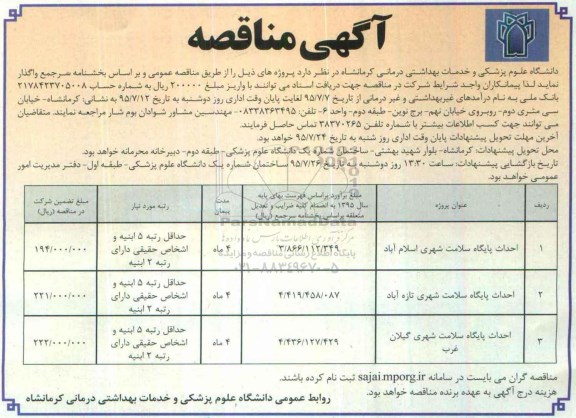 آگهی مناقصه
دانشگاه علوم پزشکی و خدمات بهداشتی درمانی کرمانشاه در نظر دارد پروژه های ذیل را از طریق مناقصه عمومی و بر اساس بخشنامه سرجمع واگذار
نماید لذا پیمانکاران واجد شرایط شرکت در مناقصه جهت دریافت اسناد می توانند با واریز مبلغ ۲۰۰۰۰۰ ریال به شماره حساب ۲۱۷۸۴۲۳۷۰۵۰۰۸
بانک ملی به نام درآمدهای غیربهداشتی و غیر درمانی از تاریخ ۹۵/۷/۷ لغایت پایان وقت اداری روز دوشنبه به تاریخ ۹۵/۷/۱۲ به نشانی: کرمانشاه- خیابان
سی متری دوم- روبروی خیابان نهم- برج نوین- طبقه دوم- واحد ۶- تلفن: ۰۸۳۳۸۳۶۳۴۹۵- مهندسین مشاور شوادان بوم شار مراجعه نمایند. متقاضیان
می توانند جهت کسب اطلاعات بیشتر با شماره تلفن ۳۸۳۷۰۲۶۵ تماس حاصل فرمایند.
آخرین مهلت تحویل پیشنهادات پایان وقت اداری روز شنبه به تاریخ ۹۵/۷/۲۴ خواهد بود.
محل تحویل پیشنهادات: کرمانشاه- بلوار شهید بهشتی- ساختمان شماره یک دانشگاه علوم پزشکی- طبقه دوم- دبیرخانه محرمانه خواهد بود.
تاریخ بازگشایی پیشنهادات: ساعت ۱۳:۳۰ روز دوشنبه به تاریخ ۹۵/۷/۲۶ ساختمان شماره یک دانشگاه علوم پزشکی- طبقه اول- دفتر مدیریت امور
عمومی خواهد بود.
ردیف | عنوان پروژه | مبلغ برآورد براساس فهرست بهای پایه سال ۱۳۹۵ به انضمام کلیه ضرایب و تعدیل متعلقه براساس بخشنامه سرجمع (ریال) | مدت پیمان | رتبه مورد نیاز | مبلغ تضمین شرکت در مناقصه (ریال)
۱ | احداث پایگاه سلامت شهری اسلام آباد | ۳/۸۶۶/۱۱۲/۳۴۹ | ۴ ماه | حداقل رتبه ۵ ابنیه و اشخاص حقیقی دارای رتبه ۲ ابنیه | ۱۹۴/۰۰۰/۰۰۰
۲ | احداث پایگاه سلامت شهری تازه آباد | ۴/۴۱۹/۴۵۸/۰۸۷ | ۴ ماه | حداقل رتبه ۵ ابنیه و اشخاص حقیقی دارای رتبه ۲ ابنیه | ۲۲۱/۰۰۰/۰۰۰
۳ | احداث پایگاه سلامت شهری گیلان غرب | ۴/۴۳۶/۱۲۷/۴۲۹ | ۴ ماه | حداقل رتبه ۵ ابنیه و اشخاص حقیقی دارای رتبه ۲ ابنیه | ۲۲۲/۰۰۰/۰۰۰
ParsNamadData
پایگاه اطلاع رسانی مناقصه و مزایده
۰۲۱-۸۸۳۴۹۶۷۰-۵
مناقصه گران می بایست در سامانه sajai.mporg.ir ثبت نام کرده باشند.
هزینه درج آگهی به عهده برنده مناقصه خواهد بود.
روابط عمومی دانشگاه علوم پزشکی و خدمات بهداشتی درمانی کرمانشاه